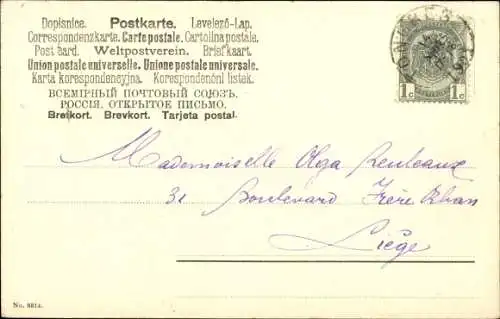 Dopisnice. Postkarte. Levelező-Lap.
Correspondenzkarte. Carte postale. Cartolina postale.
Post card. Weltpostverein. Briefkaart.
Union postale universelle. Unione postale universale.
Karta korespondencyjna. Korespondenční lístek.
ВСЕМІРНЫЙ ПОЧТОВЫЙ СОЮЗЪ.
РОССІЯ. ОТКРЫТОЕ ПИСЬМО.
Brefkort. Brevkort. Tarjeta postal.
1c 1c
Mademoiselle Olga Renleaux
31 Boulevard Frère Orban
Liège
No. 8814.